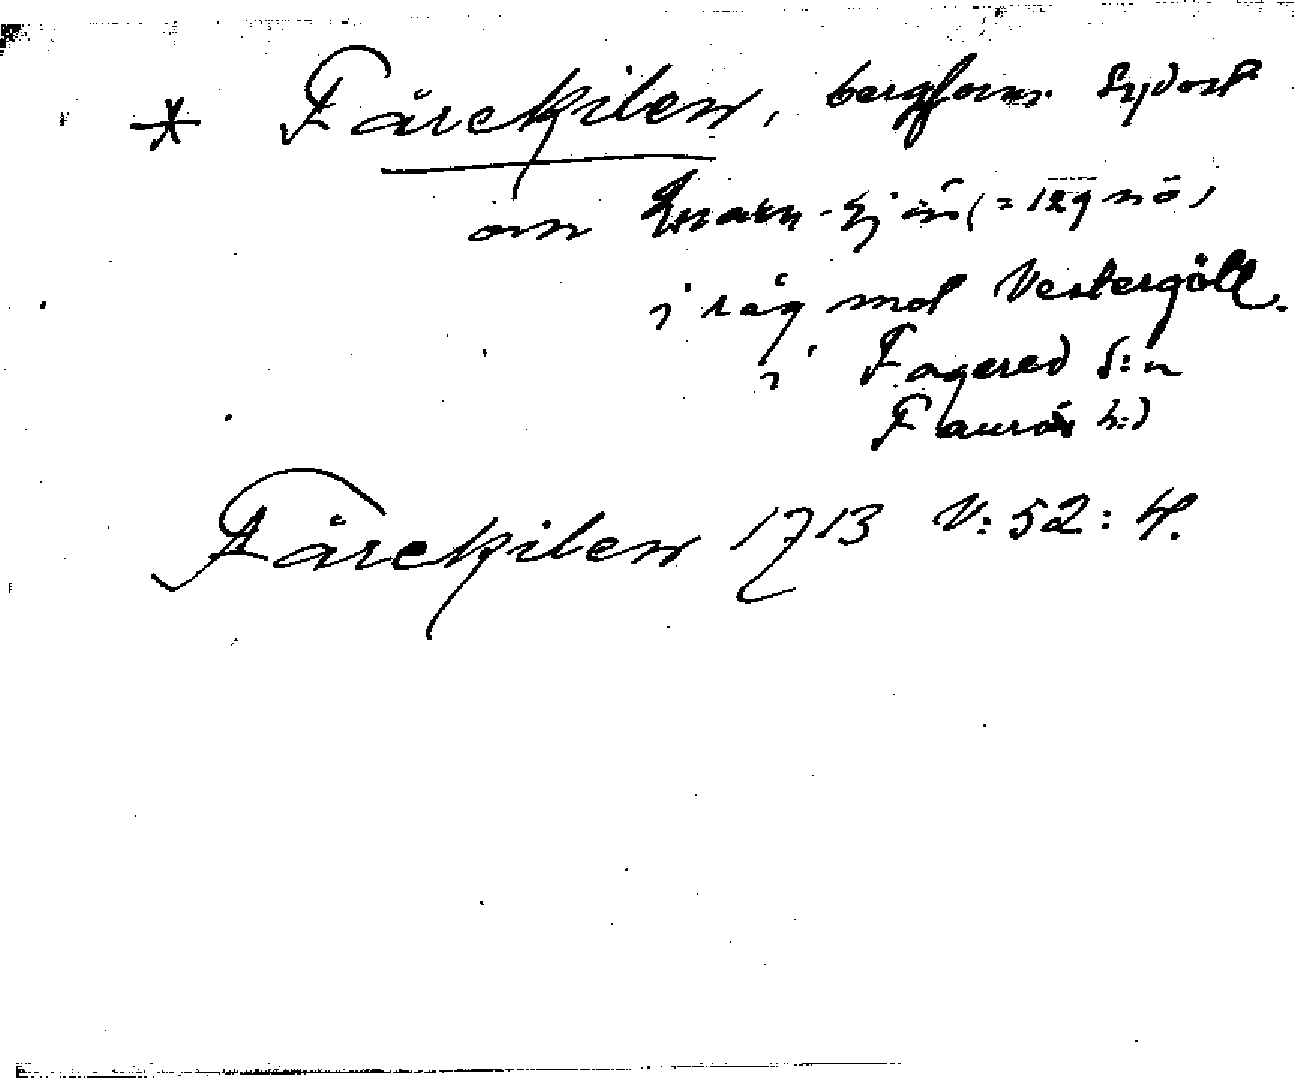 * Fårekilen, bergform. Sydost
om Kvarn-sjön (= 129 nö)
i råg mot Vestergötl.
i Fagered s:n
Faurås h:d
Fårekilen 1713 V: 52: 4.